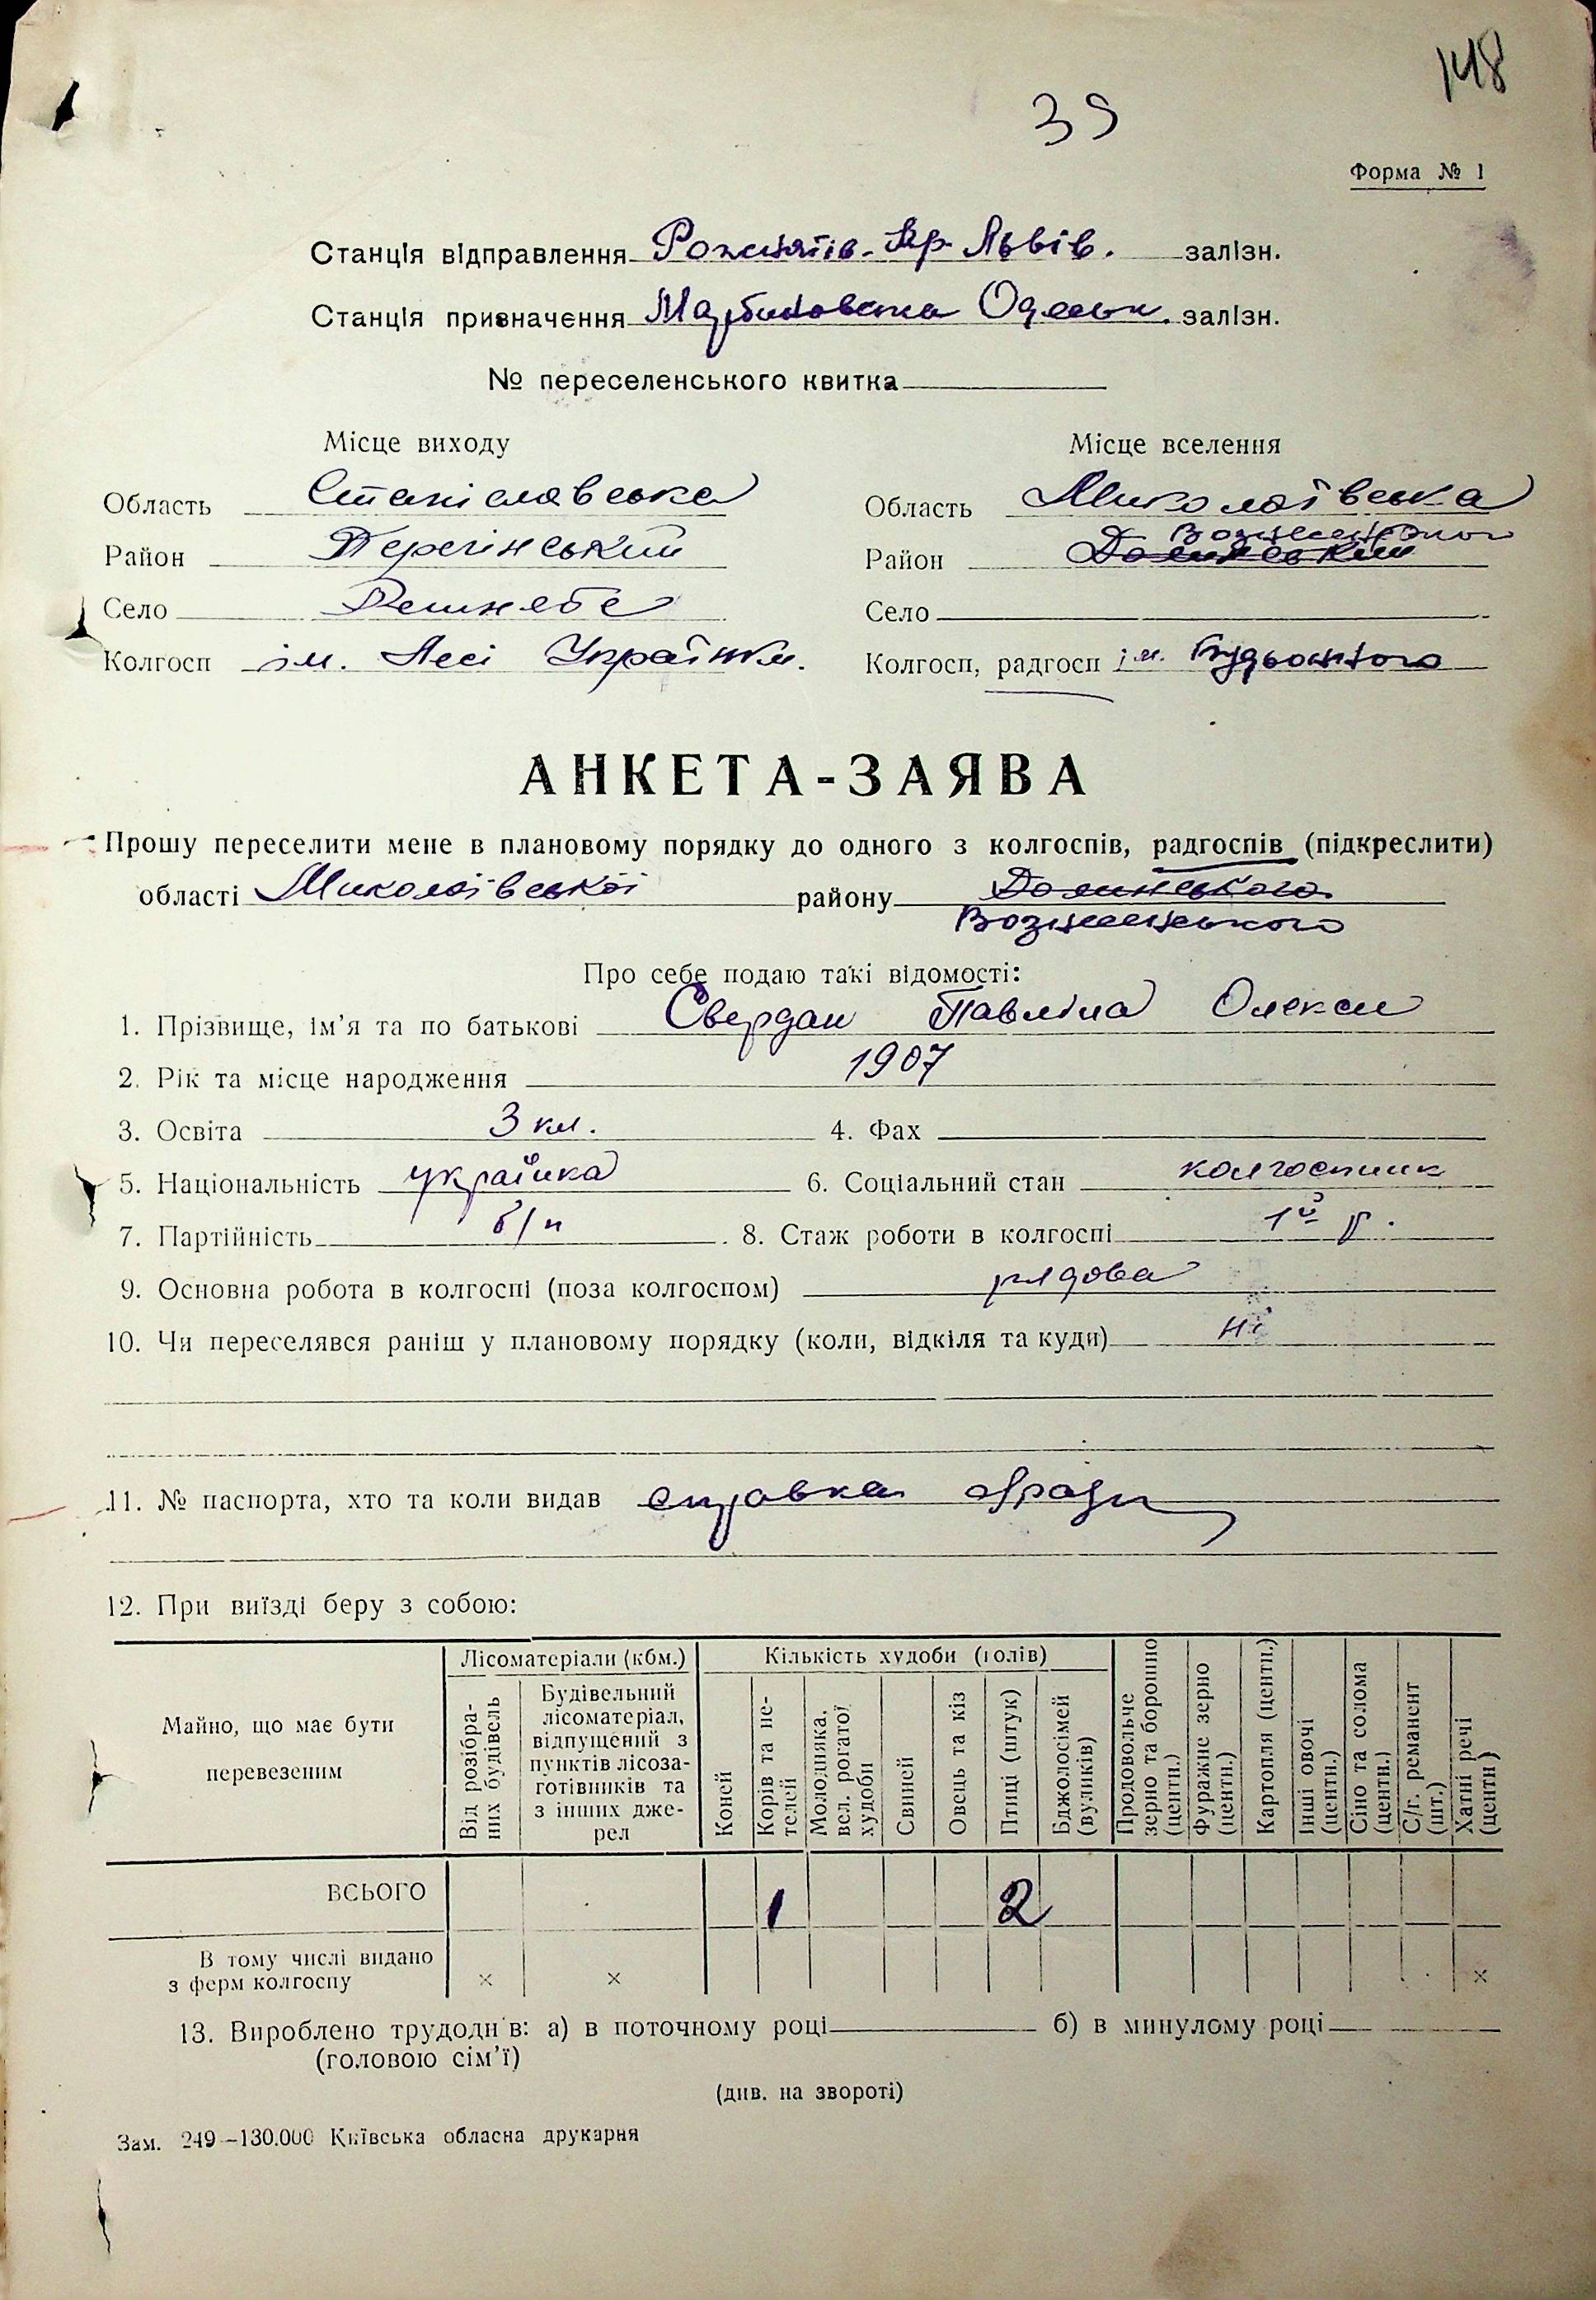 148
39
Форма № 1
Станція відправлення Рожнятів-Кр Львів. залізн.
Станція призначення Мартинівська Одеськ. залізн.
№ переселенського квитка
Місце виходу
Місце вселення
Область Станіславська
Область Миколаївська
Район Перегінський
Район Долинський Вознесенського
Село
Село
Колгосп ім. Лесі Українки.
Колгосп, радгосп ім. Будьонного
АНКЕТА-ЗАЯВА
Прошу переселити мене в плановому порядку до одного з колгоспів, радгоспів (підкреслити)
області Миколаївської району Долинського
Вознесенського
Про себе подаю такі відомості:
1. Прізвище, ім'я та по батькові Свердан Павліна Олекси
2. Рік та місце народження 1907
3. Освіта 3 кл. 4. Фах
5. Національність українка 6. Соціальний стан колгоспник
7. Партійність б/п 8. Стаж роботи в колгоспі р.
9. Основна робота в колгоспі (поза колгоспом) рядова
10. Чи переселявся раніш у плановому порядку (коли, відкіля та куди) ні
11. № паспорта, хто та коли видав справка
12. При виїзді беру з собою:
Майно, що має бути перевезеним
Лісоматеріали (кбм.)
Від розібраних будівель
Будівельний лісоматеріал, відпущений з пунктів лісозаготівників та з інших джерел
Кількість худоби (голів)
Коней
Корів та нетелей
Молодняка, вел. рогатої худоби
Свиней
Овець та кіз
Птиці (штук)
Бджолосімей (вуликів)
Продовольче зерно та борошно (центн.)
Фуражне зерно (центн.)
Картопля (центн.)
Інші овочі (центн.)
Сіно та солома (центн.)
С/г. реманент (шт.)
Хатні речі (центн)
ВСЬОГО 1 2
В тому числі видано
з ферм колгоспу × × ×
13. Вироблено трудоднів: а) в поточному році б) в минулому році
(головою сім'ї)
(див. на звороті)
Зам. 249—130.000 Київська обласна друкарня